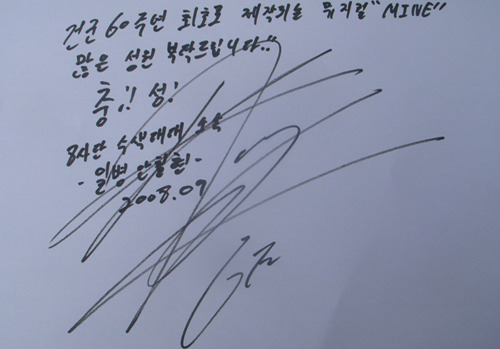 건군 60주년 최초로 제작되는 뮤지컬 "MINE"
많은 성원 부탁드립니다!!
충!! 성!
8사단 수색대대 소속
- 일병 안칠현 -
2008.09